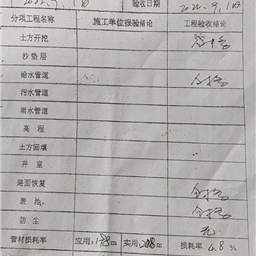 验收日期 2022.9.18
分项工程名称 施工单位报验结论 工程验收结论
土方开挖 合格
砂垫层
给水管道 合格
污水管道
雨水管道
高程
土方回填
井室
路面恢复 合格
表池 合格
防尘 无
管材损耗率 应用:198m 实用:208m 损耗率4.8%